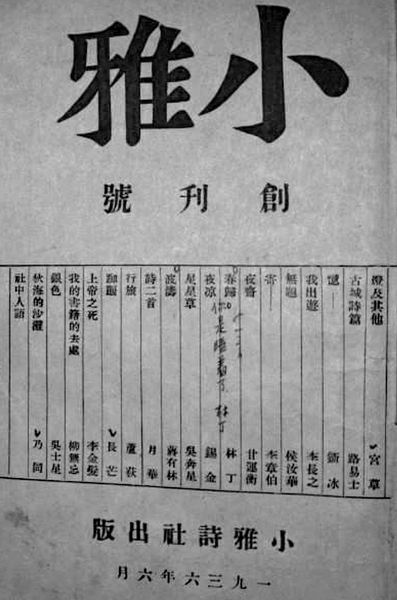 小雅
創刊號
燈及其他 宮草
古城詩篇 路易士
憶—— 冰
我出遊 李長之
無題 侯汝華
寄—— 李章伯
夜 甘運衡
春歸 林丁
你是睡着了 林丁
夜凉 錫金
星星草 吳奔星
波濤 蔣有林
詩二首 月華
行旅 蘆荻
長芒
上帝之死 李金髮
我的書籍的去處 柳無忘
銀色 吳士星
秋海的沙灘 乃同
社中人語
小雅詩社出版
一九三六年六月